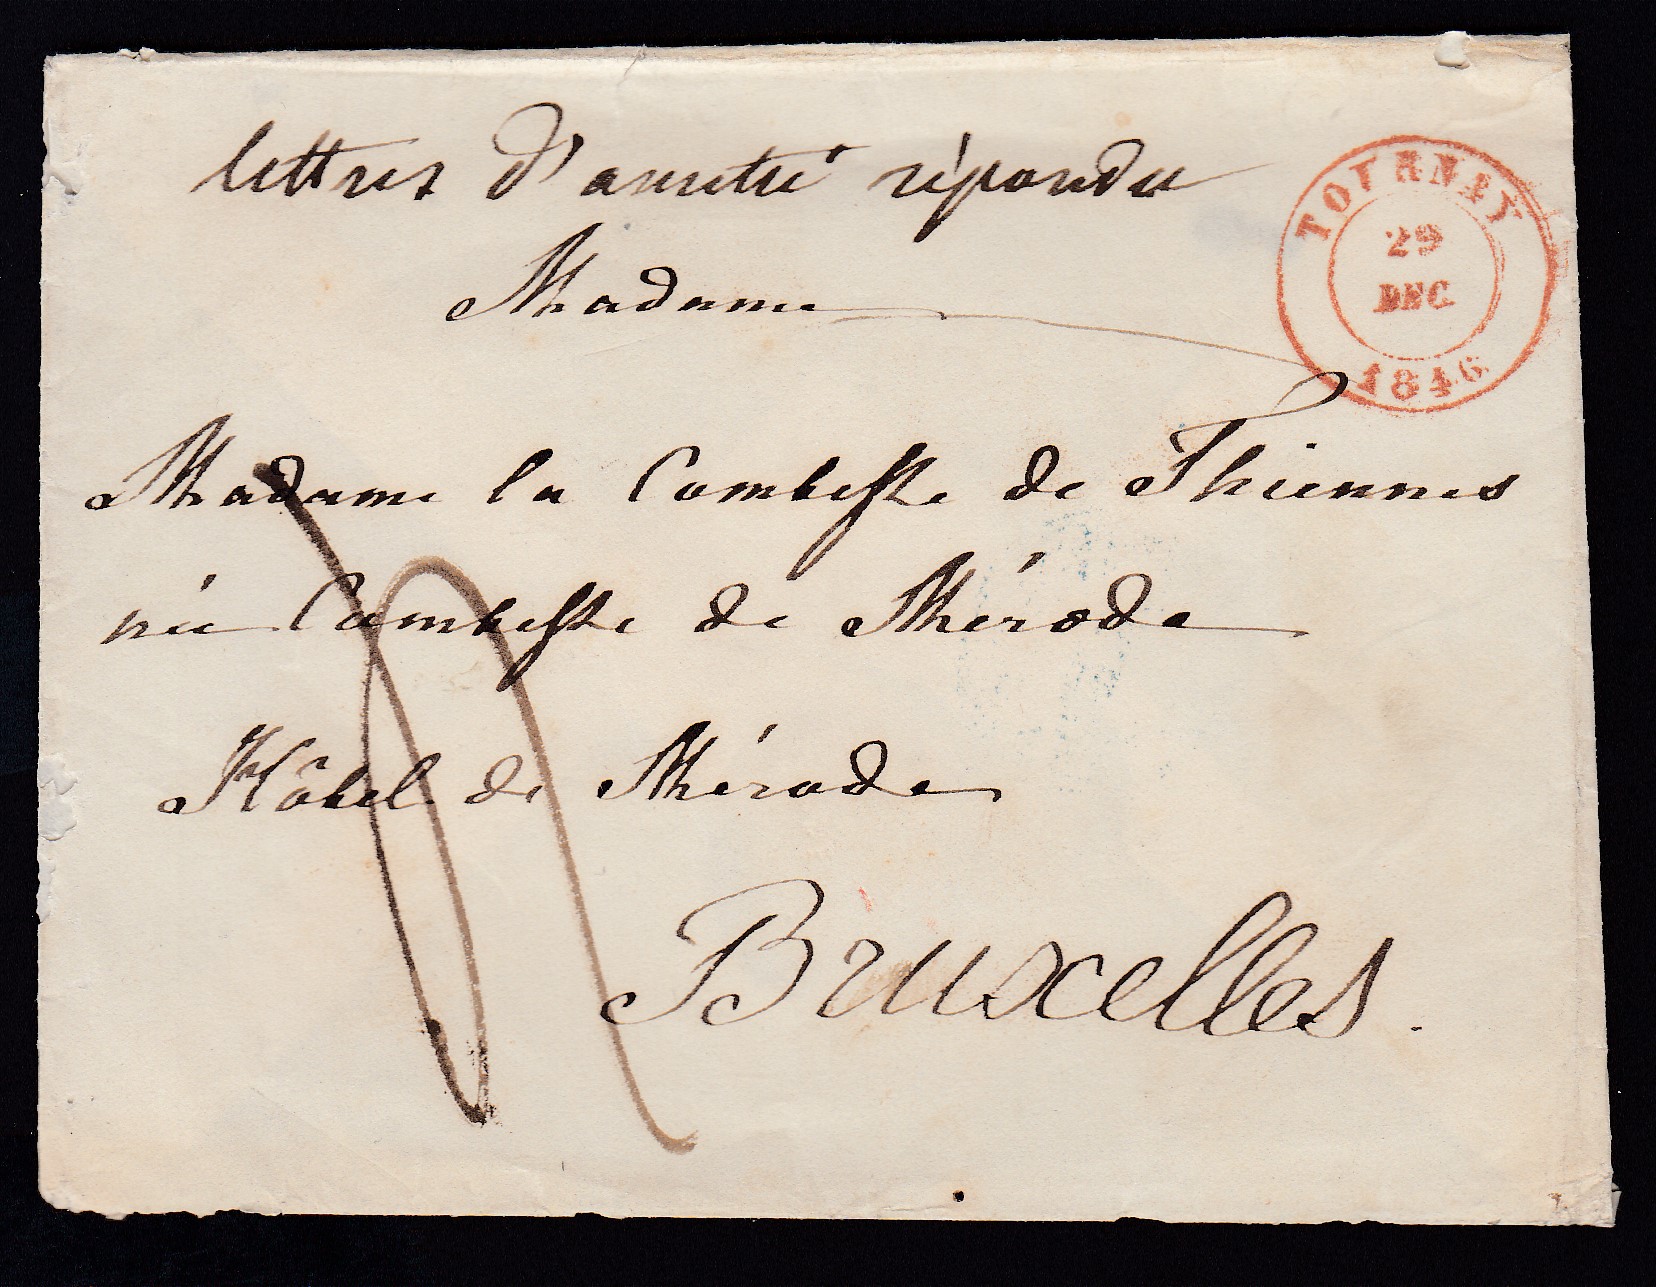 lettres d'amitié répondu
Madame
Madame la Comtesse de Thiennes
née Comtesse de Mérode
Hôtel de Mérode
Bruxelles.
TOURNAY
29
DEC
1846